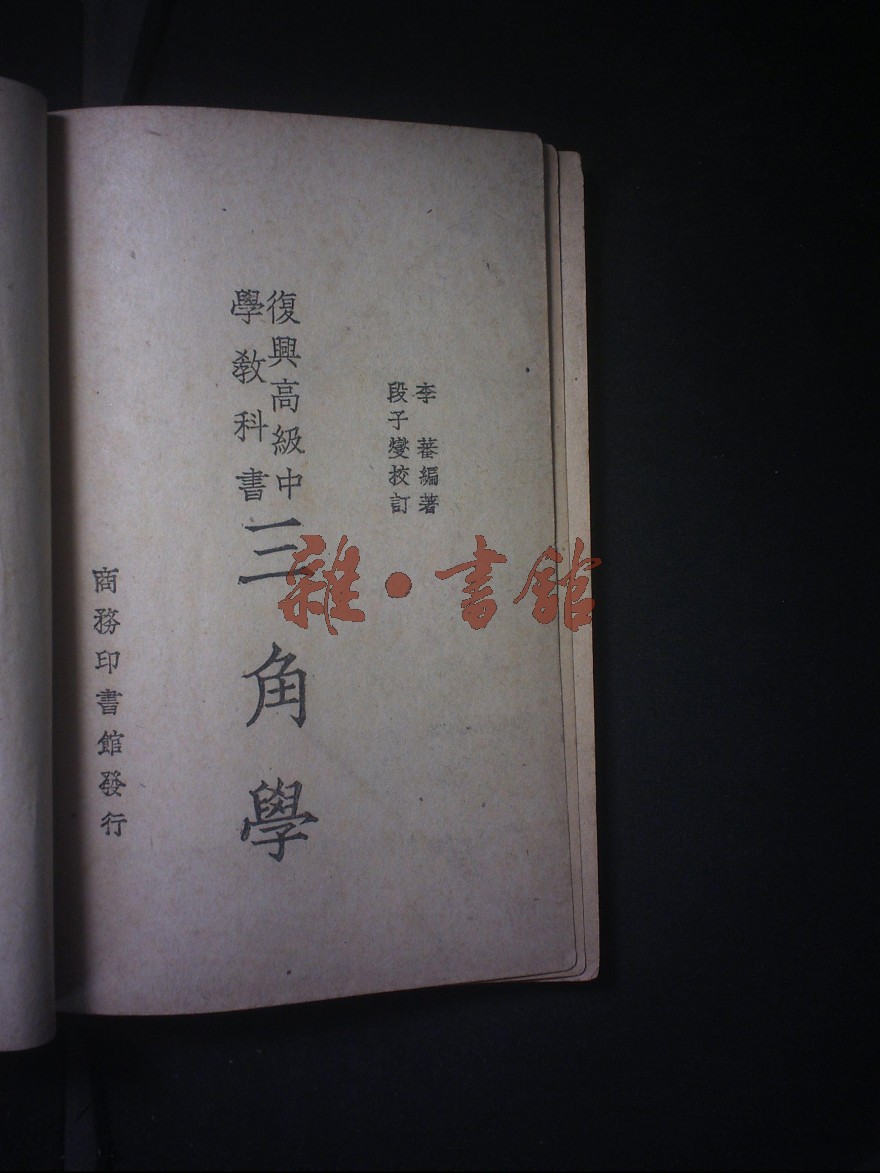 李蕃編著
段子燮校訂
復興高級中
學教科書
三角學
商務印書館發行
雜·書館